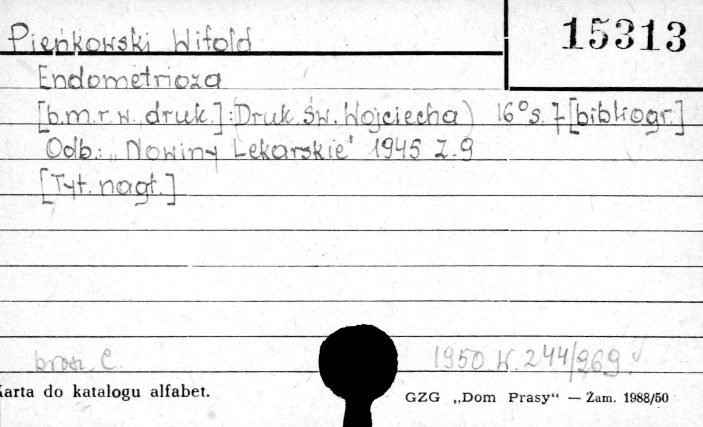 15313
Pieńkowski Witold
Endometrioza
[b.m.r.w. druk.]: Druk. św. Wojciecha) 16° s. 7 [bibliogr.]
Odb.: „Nowiny Lekarskie" 1945 z. 9
[Tyt. nagł.]
brosz. C. 1950 K. 244/969.
Karta do katalogu alfabet.
GZG „Dom Prasy“ — Zam. 1988/50